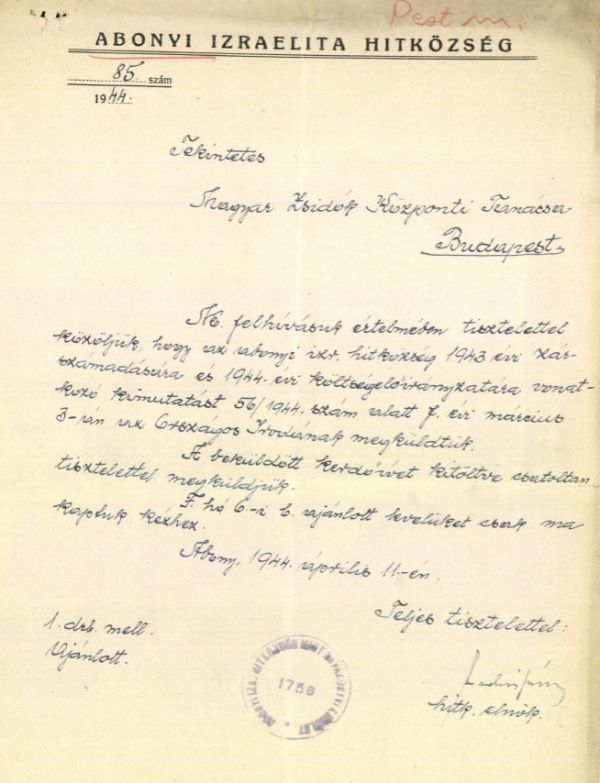 Pest m.
ABONYI IZRAELITA HITKÖZSÉG
85. szám
1944.
Tekintetes
Magyar Zsidók Központi Tanácsa
Budapest.
N. felhívásuk értelmében tisztelettel
közöljük, hogy az abonyi izr. hitközség 1943 évi zár-
számadására és 1944. évi költségelőirányzatára vonat-
kozó kimutatást 56/1944. szám alatt f. évi március
3-án az Országos Irodának megküldtük.
A beküldött kérdőívet kitöltve csatoltan
tisztelettel megküldjük.
F. hó 6-i b. ajánlott levelüket csak ma
kaptuk kézhez.
Abony, 1944. április 11-én.
Teljes tisztelettel:
1. drb. mell.
Ajánlott.
1756
hitk. elnök.